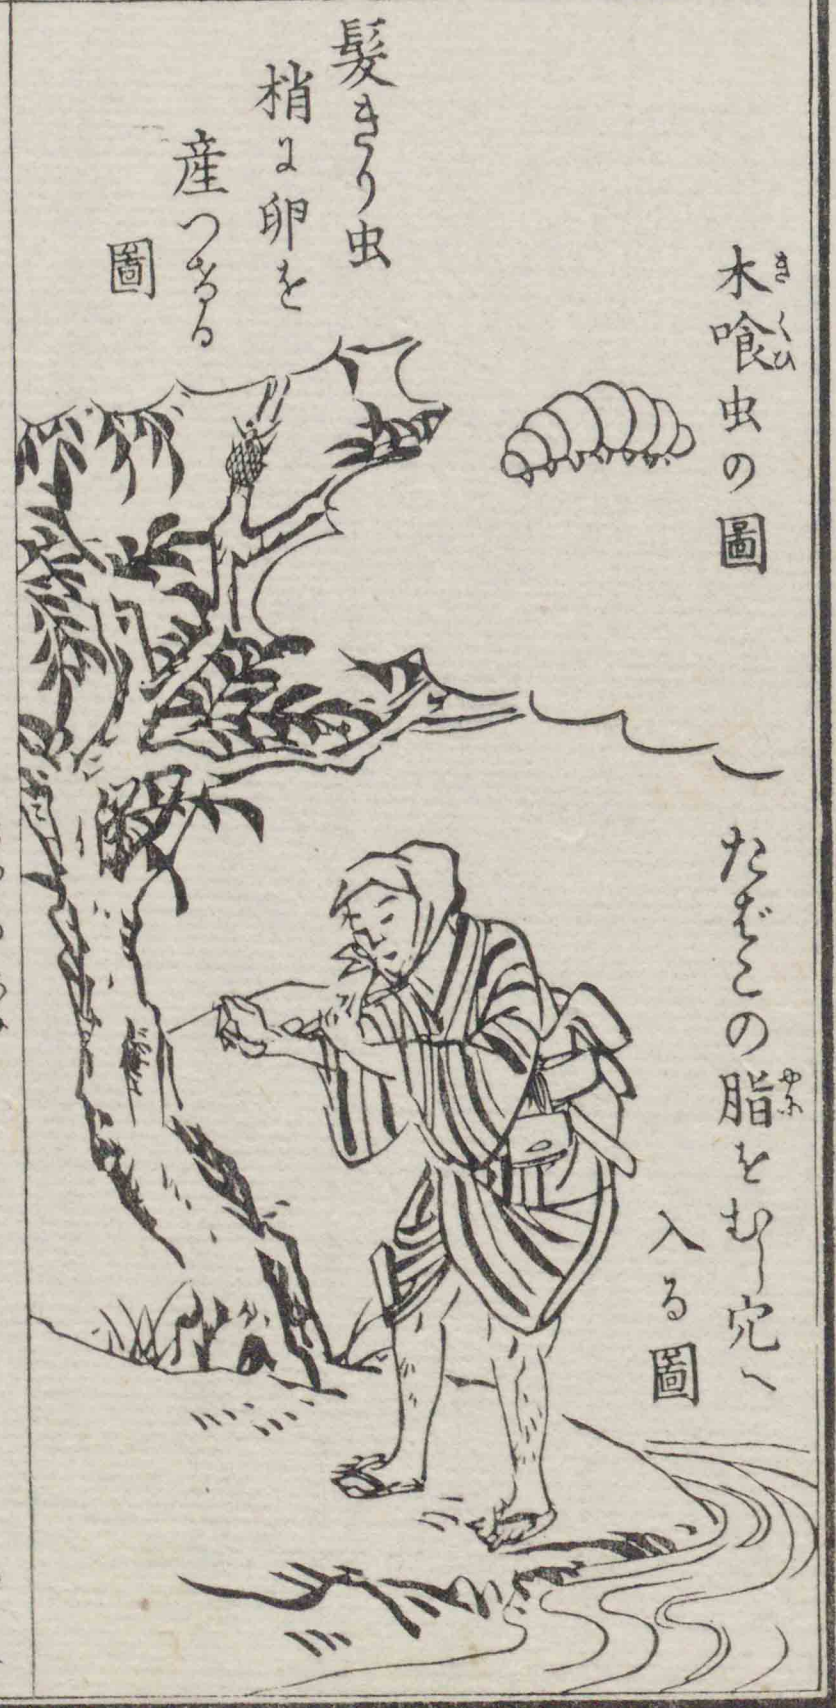 木喰虫の圖
きくひ
たばこの脂をむし穴へ
やに
入る圖
髪きり虫
梢に卵を
産つける
圖